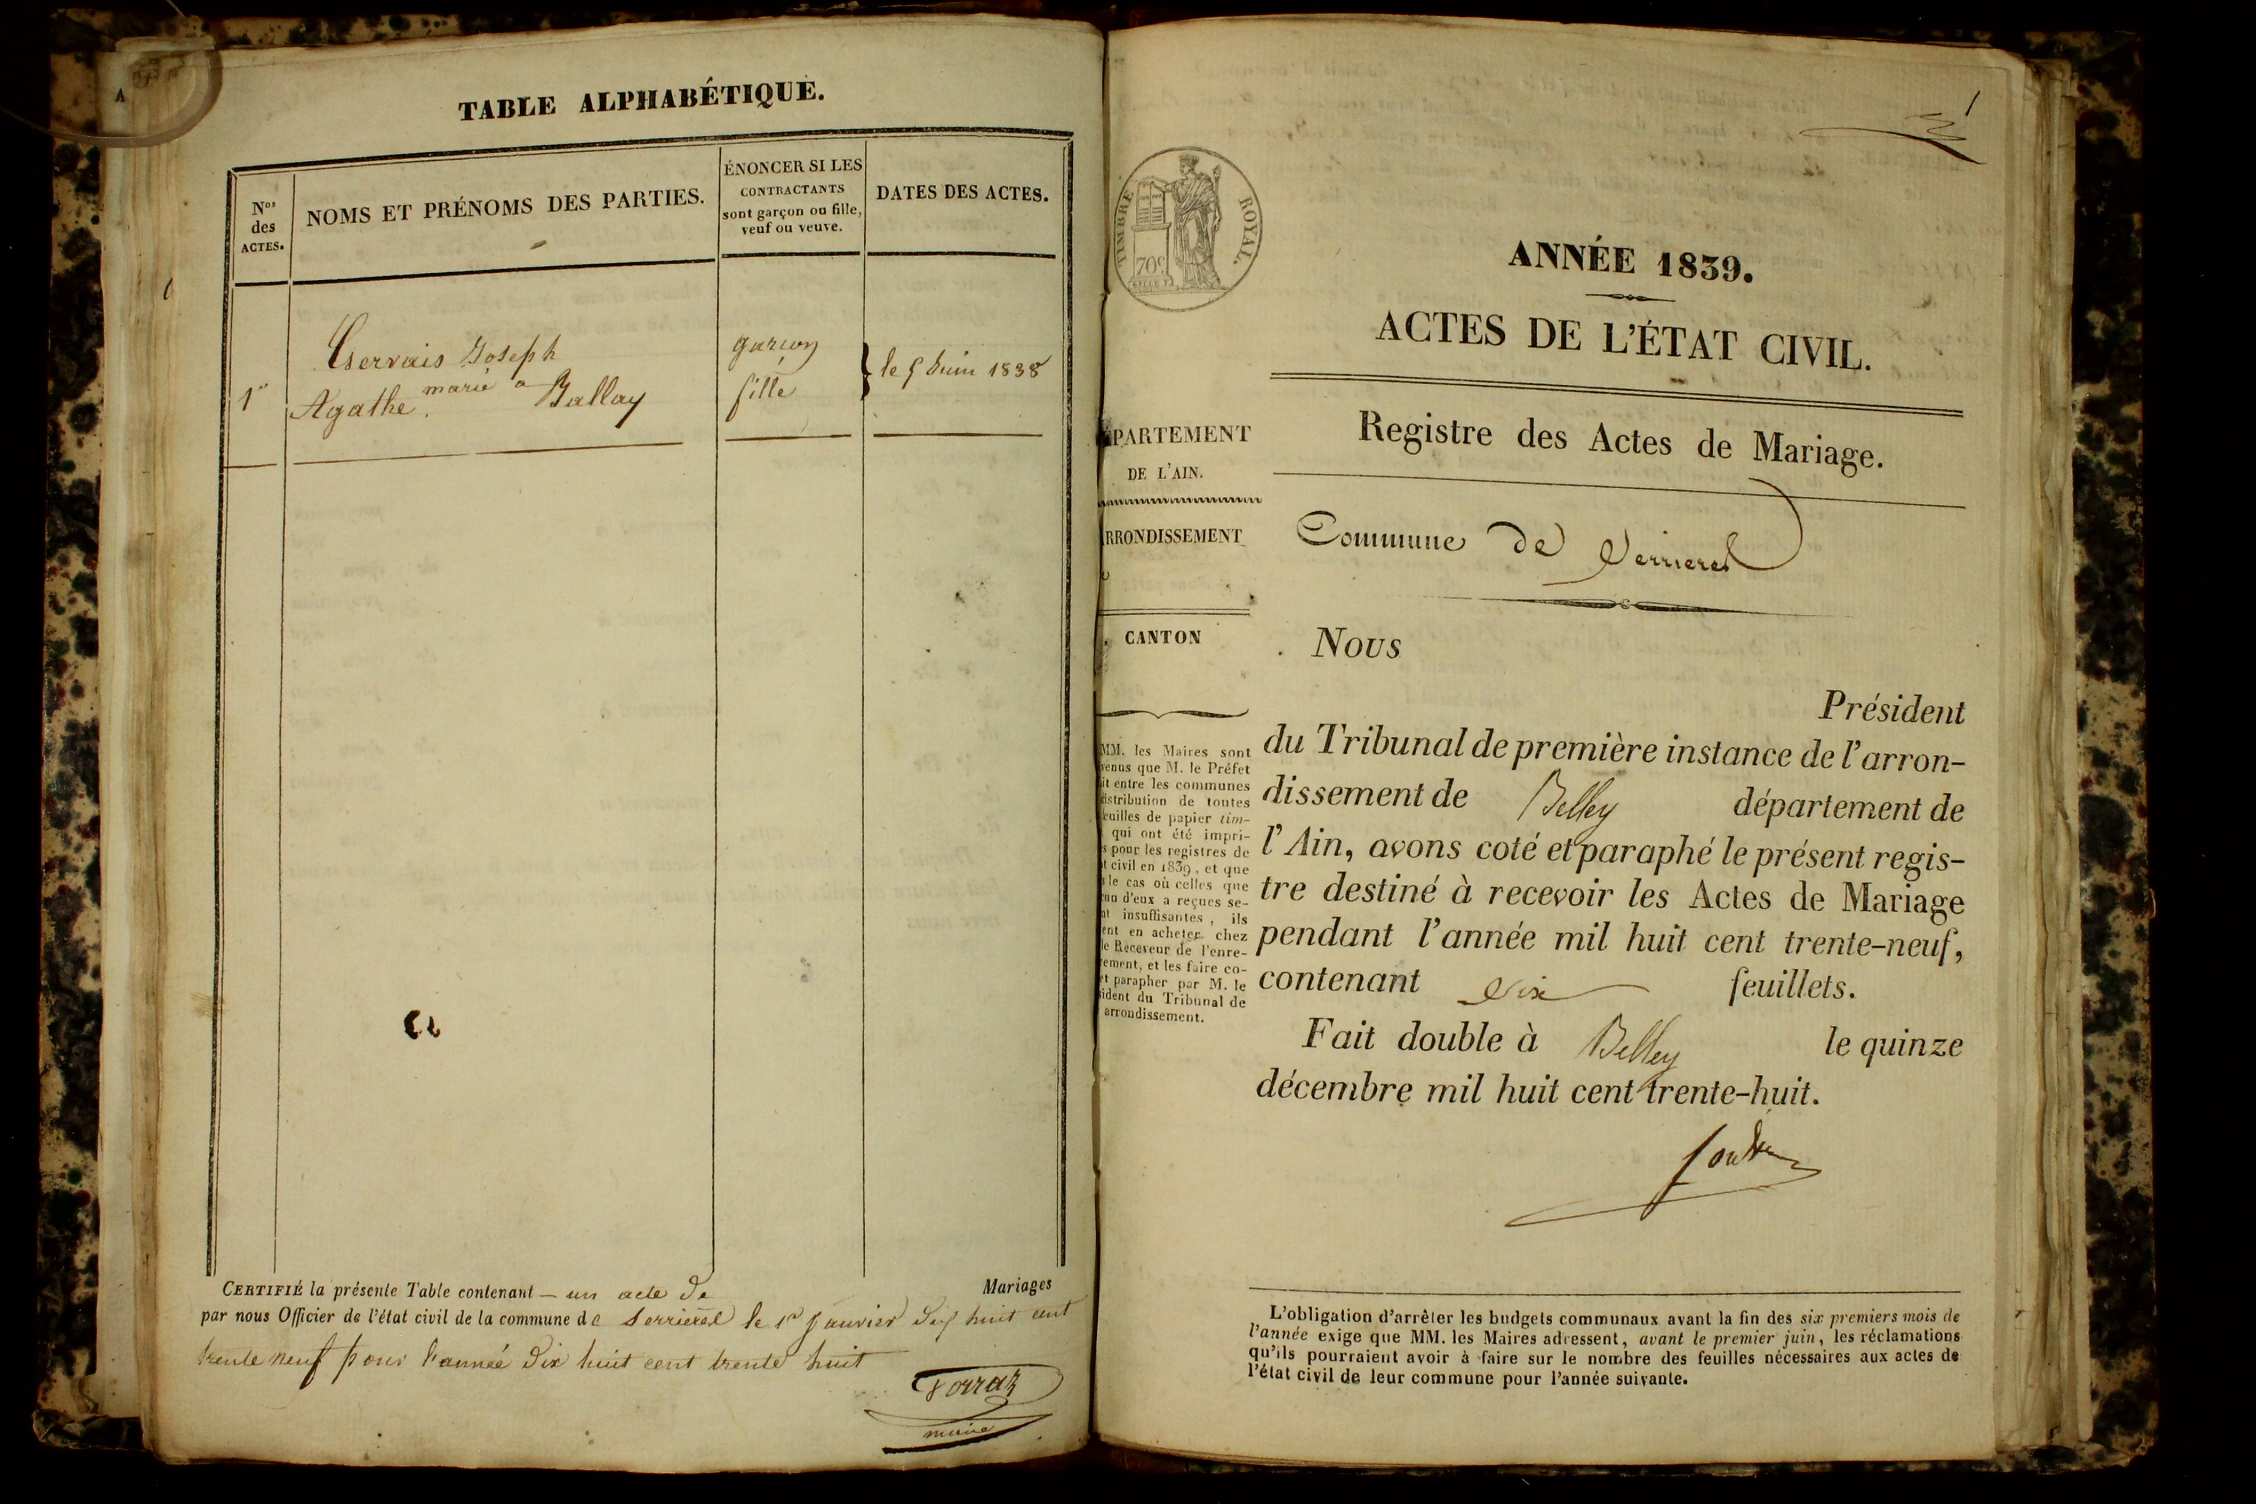 TABLE ALPHABÉTIQUE.
Nos des ACTES.
NOMS ET PRÉNOMS DES PARTIES.
ÉNONCER SI LES
CONTRACTANTS
sont garçon ou fille,
veuf ou veuve.
DATES DES ACTES.
Gervais Joseph garçon
1er marié a le 5 Juin 1838
Agathe Ballay fille
CERTIFIÉ la présente Table contenant un acte de Mariages
par nous Officier de l'état civil de la commune de Serrieres le 1er Janvier dix huit cent
trente neuf pour l'année dix huit cent trente huit
maire
1
TIMBRE ROYAL.
70c.
ANNÉE 1839.
ACTES DE L'ÉTAT CIVIL.
PARTEMENT
DE L'AIN.
RRONDISSEMENT
CANTON
MM. les Maires sont
venus que M. le Préfet
it entre les communes
distribution de toutes
feuilles de papier tim-
qui ont été impri-
s pour les registres de
t civil en 1839, et que
le cas où celles que
un d'eux a reçues se-
nt insuffisantes, ils
ent en acheter chez
le Receveur de l'enre-
rement, et les faire co-
et parapher par M. le
sident du Tribunal de
arrondissement.
Registre des Actes de Mariage.
Commune de Serrieres
Nous
Président
du Tribunal de première instance de l'arron-
dissement de Belley département de
l'Ain, avons coté et paraphé le présent regis-
tre destiné à recevoir les Actes de Mariage
pendant l'année mil huit cent trente-neuf,
contenant six feuillets.
Fait double à Belley le quinze
décembre mil huit cent trente-huit.
L'obligation d'arrêter les budgets communaux avant la fin des six premiers mois de
l'année exige que MM. les Maires adressent, avant le premier juin, les réclamations
qu'ils pourraient avoir à faire sur le nombre des feuilles nécessaires aux actes de
l'état civil de leur commune pour l'année suivante.